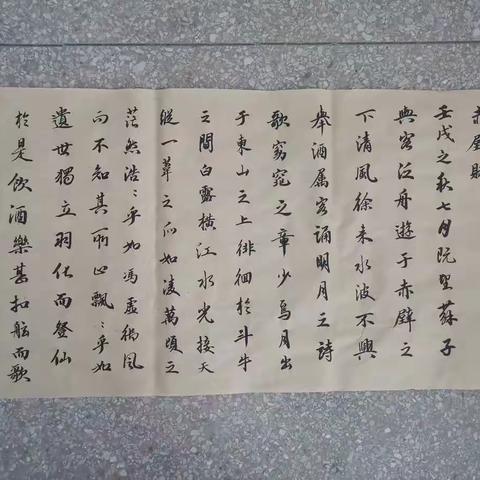 赤壁賦
壬戌之秋七月既望蘇子
與客泛舟遊于赤壁之
下清風徐来水波不興
舉酒属客誦明月之詩
歌窈窕之章少焉月出
于東山之上徘徊於斗牛
之間白露横江水光接天
縱一葦之所如淩萬頃之
茫然浩〻乎如馮虚御風
而不知其所止飄〻乎如
遺世獨立羽化而登仙
於是飲酒樂甚扣舷而歌